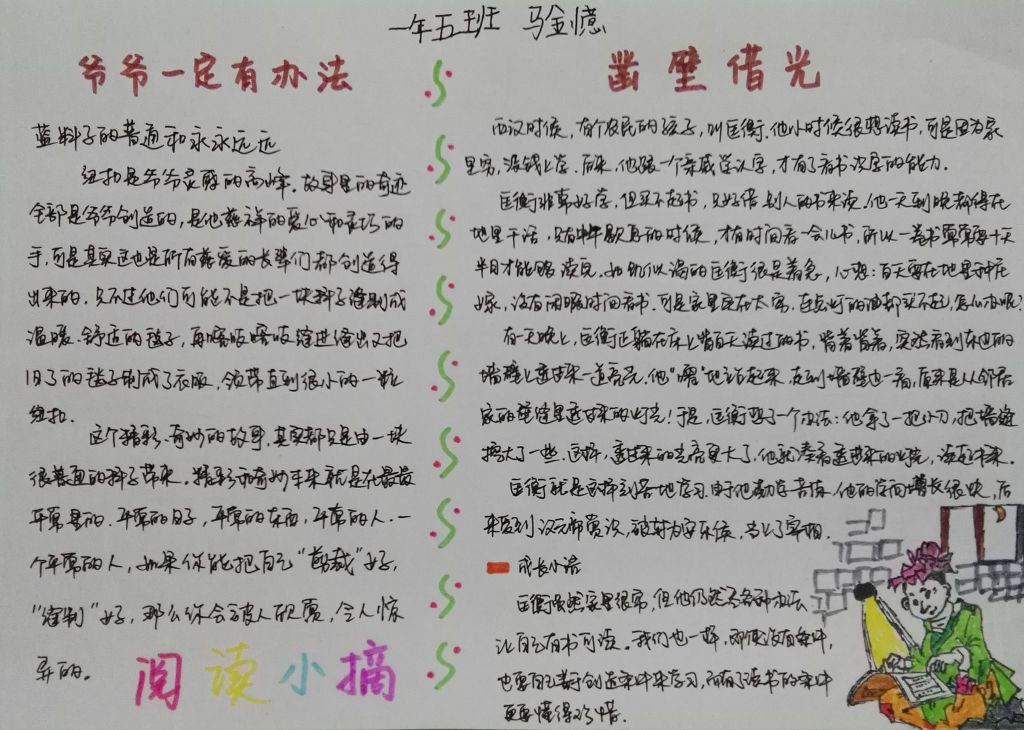 一年五班 马金憶
爷爷一定有办法
蓝料子的普通和永永远远
纽扣是爷爷灵感的高峰。故事里的奇迹
全部是爷爷创造的,是他慈祥的爱心和灵巧的
手,可是其实这也是所有慈爱的长辈们都创造得
出来的。只不过他们可能不是把一块料子缝制成
温暖、舒适的毯子,再喀吱喀吱缝进缝出又把
旧了的毯子制成了衣服,领带直到很小的一粒
纽扣。
这个精彩、奇妙的故事,其实都只是由一块
很普通的料子带来。精彩和奇妙手来就是在最最
平常里的。平常的日子,平常的东西,平常的人。一
个平常的人,如果你能把自己“剪裁”好,
“缝制”好,那么你会被人欣赏,令人惊
异的。
阅读小摘
凿壁借光
西汉时候,有个农民的孩子,叫匡衡.他小时候很想读书,可是因为家
里穷,没钱上学.后来,他跟一个亲戚学认字,才有了看书识字的能力.
匡衡非常好学,但买不起书,只好借别人的书来读.他一天到晚都得在
地里干活,只有中午歇息的时候,才有时间看一会儿书,所以一卷书常常要十天
半月才能够读完.如饥似渴的匡衡很是着急,心想:白天要在地里种
庄稼,没有闲暇时间看书.可是家里实在太穷,连点灯的油都买不起,怎么办呢?
有一天晚上,匡衡正躺在床上背白天读过的书,背着背着,突然看到东边的
墙壁上透过来一道亮光.他“嚯”地站起来,走到墙壁边一看,原来是从邻居
家的壁缝里透过来的灯光!于是,匡衡想了一个办法:他拿了一把小刀,把墙缝
挖大了一些.这样,透过来的光亮更大了,他就凑着透进来的灯光,读起书来.
匡衡就是这样到各地学习.由于他勤学苦练,他的学问增长很快,后
来受到汉元帝赏识,被封为安乐侯,当上了宰相.
成长小语
匡衡虽然家里很穷,但他仍然想各种办法
让自己有书可读。我们也一样,即使没有条件,
也要自己善于创造条件来学习,而有了读书的条件
更要懂得珍惜.